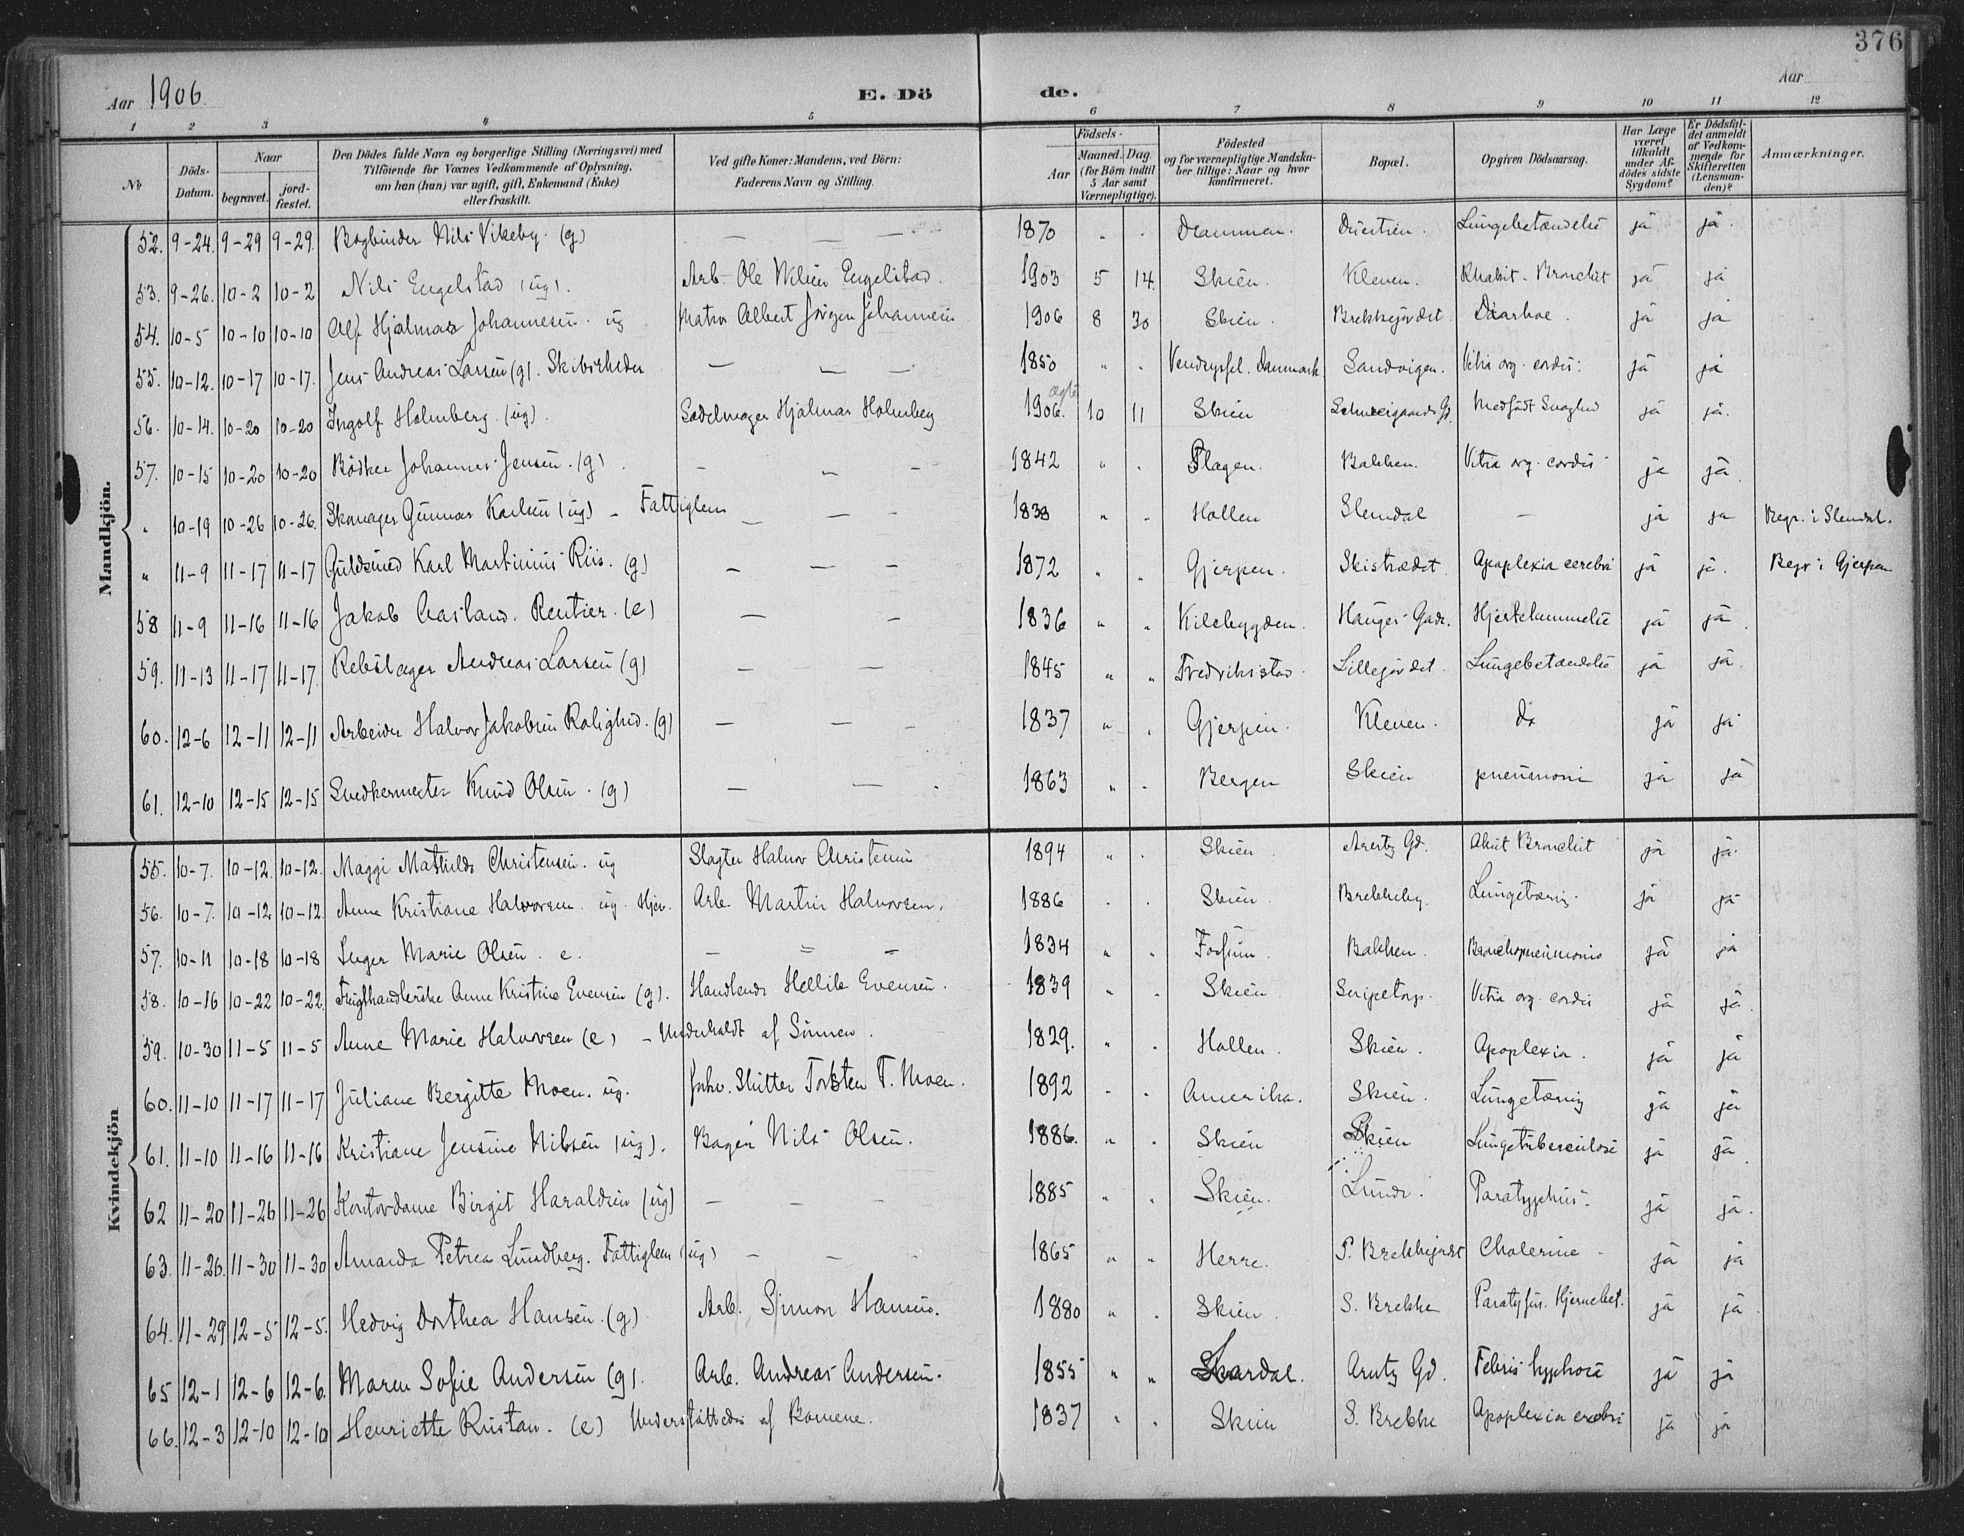 376
Aar 1906. E. Dö de. Aar
1 2 3 4 5 6 7 8 9 10 11 12
No
Döds-Datum.
Naar begravet. jordfæstet.
Den Dödes fulde Navn og borgerlige Stilling (Næringsvei) med Tilföiende for Voxnes Vedkommende af Oplysning, om han (hun) var ugift, gift, Enkemand (Enke) eller fraskilt.
Ved gifte Koner: Mandens, ved Börn: Faderens Navn og Stilling.
Födsels- Aar Maaned. Dag. (for Börn indtil 5 Aar samt Værnepligtige).
Födested og for værnepligtige Mandskaber tillige: Naar og hvor konfirmeret.
Bopæl.
Opgiven Dödsaarsag.
Har Læge været tilkaldt under Afdödes sidste Sygdom?
Er Dödsfaldet anmeldt af Vedkommende for Skifteretten (Lensmanden)?
Anmærkninger.
Mandkjön.
52. 9-24. 9-29 9-29. Bogbinder Nils Vikeby. (g) — — — 1870 " " Drammen. Lungebetændelse ja ja.
53. 9-26. 10-2 10-2 Nils Engelstad (ug). Arb. Ole Engelstad. 1903 5 14. Skien. Kleven. Bronchit ja ja
54. 10-5 10-10 10-10 Alf Hjalmar Johannesen. ug Matros Albert Jörgen Johannesen 1906 8 30 Skien. Brekkejordet. Diarhoe. ja ja
55. 10-12. 10-17 10-17. Jens Andreas Larsen (g). Skibsreder — — — 1850 " " Vendsyssel. Danmark Sandvigen. Vitia org. cordis. ja ja
56. 10-14. 10-20 10-20 Ingolf Holmberg. (ug). Sadelmager Hjalmar Holmberg ægte 1906. 10 11 Skien Schweigaards Gd. Medfödt Svaghed ja ja.
57. 10-15 10-20 10-20 Bödker Johannes Jensen. (g) — — — 1842 " " Slagen. Bakken. Vitia org. cordis ja ja.
" 10-19 10-26 10-26. Skomager Gunnar Karlsen (ug) – Fattiglem — — 1838 " " Hollen Slemdal — ja ja Begr. i Slemdal.
" 11-9 11-17 11-17 Guldsmed Karl Martinius Riis. (g) — — — 1872 " " Gjerpen. Skistrædet. Apoplexia cerebri ja ja. Begr i Gjerpen
58 11-9 11-16 11-16 Jakob Aasland. Rentier. (e) — — 1836 " " Kilebygden. Hauges Gade. Hjertelammelse ja ja.
59. 11-13 11-17 11-17. Rebslager Andreas Larsen (g) — — — 1845 " " Fredrikstad. Lillegjordet. Lungebetændelse ja ja.
60. 12-6 12-11 12-11 Arbeider Halvor Jakobsen Rolighed. (g) — — — 1837 " " Gjerpen. Kleven. do ja ja.
61. 12-10 12-15 12-15 Snedkermester Knud Olsen. (g) — — 1863 " " Bergen Skien pneumoni ja ja
Kvindekjön
55. 10-7. 10-12. 10-12. Maggi Mathilde Christensen. ug Slagter Halvor Christensen 1894 " " Skien Arentz Gd. Akut Bronchit ja ja.
56. 10-7. 10-12 10-12. Anna Kristiane Halvorsen. ug. Hjem. Arb. Martin Halvorsen. 1886 " " Skien. Brekkeby. Lungetæring. ja ja
57. 10-11 10-18 10-18 Inger Marie Olsen. e. — = = 1834 " " Fossum. Bakken. Bronchopneumonia ja ja
58. 10-16 10-22 10-22. Frugthandlerske Anne Kristine Evensen (g). Handlende Hellik Evensen. 1839 " " Skien. Snipetorp. Vitia org. cordis ja ja.
59. 10-30 11-5 11-5 Anne Marie Halvorsen (e) – Underholdt af Sönnen. 1829. " " Hollen. Skien. Apoplexia. ja ja
60. 11-10 11-17 11-17 Juliane Bergitte Moen. ug. Torsten T. Moen. 1892 " " Amerika. Skien. Lungetæring ja ja
61. 11-10 11-16 11-16 Kristiane Jensine Nilsen (ug). Bager Nils Olsen. 1886. " " Skien Skien Lungetuberculose ja ja.
62 11-20 11-26 11-26 Kontordame Birgit Haraldsen (ug) — — — 1885 " " Skien. Lunde. Paratyphus. ja ja.
63. 11-26. 11-30 11-30 Amanda Petrea Lundberg. Fattiglem (ug) — — — 1865 " " Herre. Brekkejordet Cholerine ja ja
64. 11-29 12-5 12-5. Hedvig Dorthea Hansen. (g) Arb. Simon Hansen. 1880 " " Skien S. Brekke Paratyfus. Hjernebet. ja ja
65 12-1 12-6 12-6. Maren Sofie Andersen (g). Arb. Andreas Andersen. 1855 " " Arentz Gd. Febris typhoid ja ja
66. 12-3 12-10 12-10 Henriette Rustan. (e) Understöttedes af Börnene. 1837 " " Skien S. Brekke Apoplexia cerebri ja ja